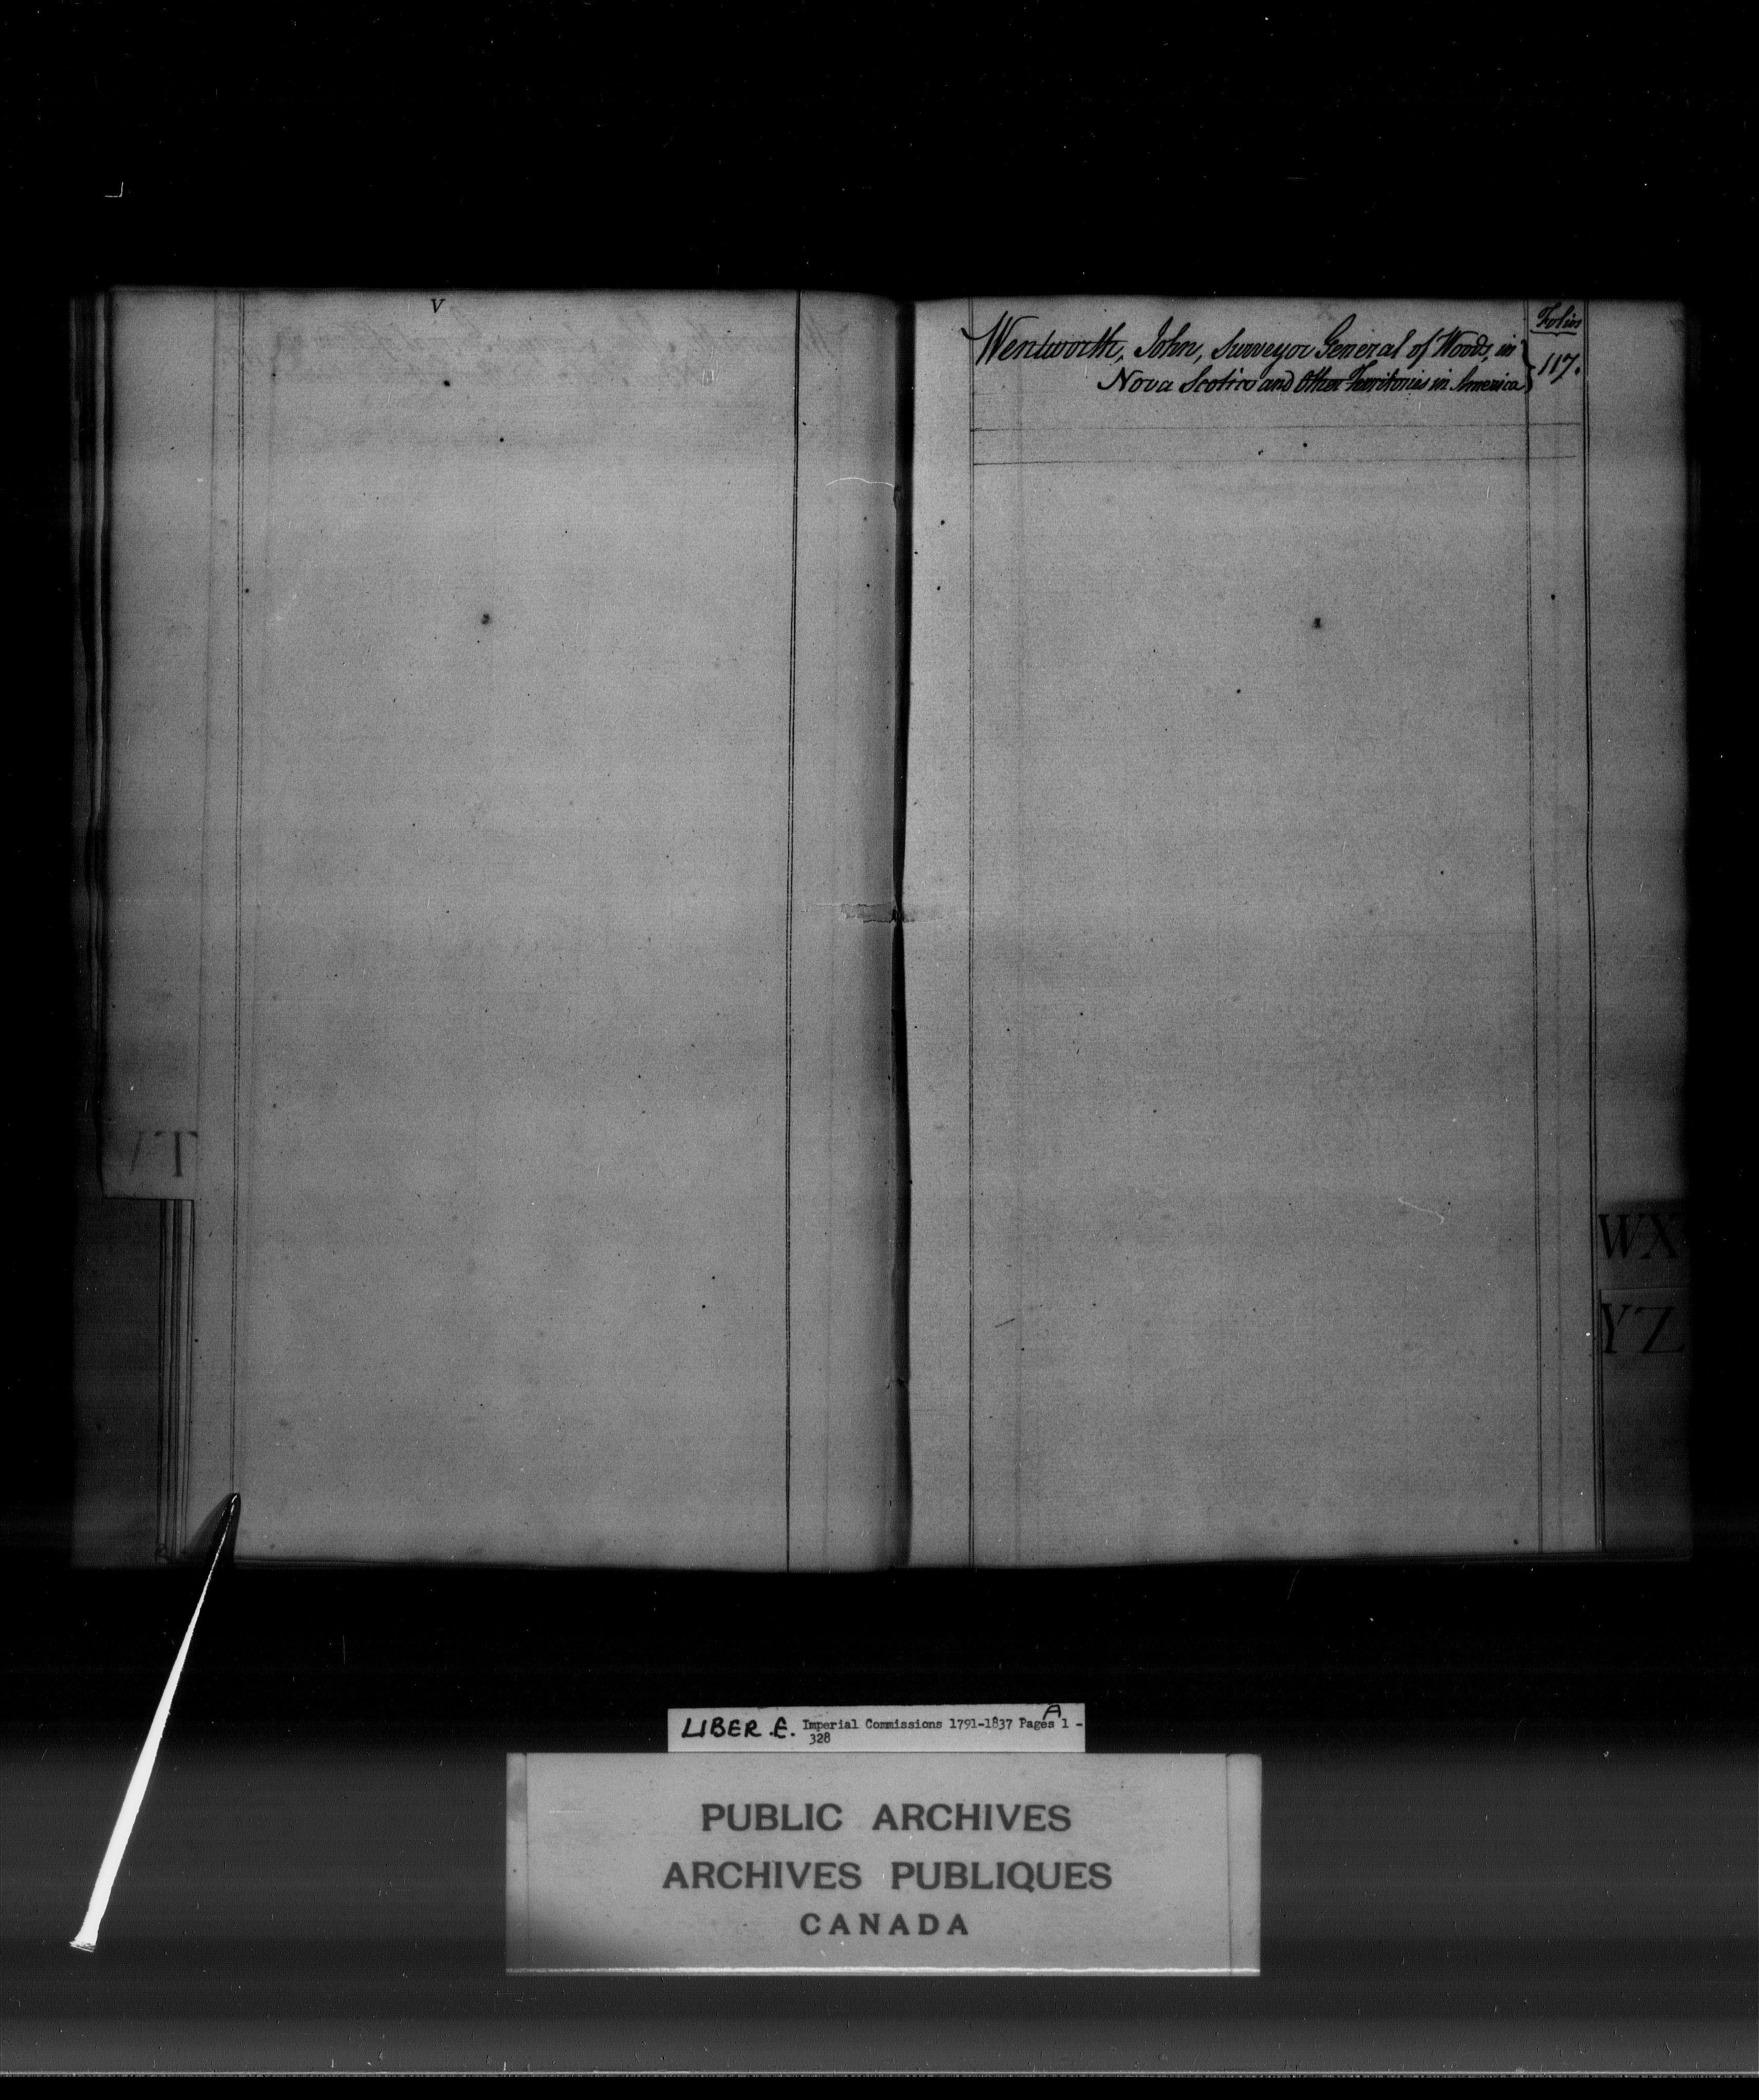 V
Folios
Wentworth, John, Surveyor General of Woods, in
Nova Scotia and Other Territories in America } 117.
VT
WX
YZ
LIBER E. Imperial Commissions 1791-1837 Pages A 1 -
328
PUBLIC ARCHIVES
ARCHIVES PUBLIQUES
CANADA